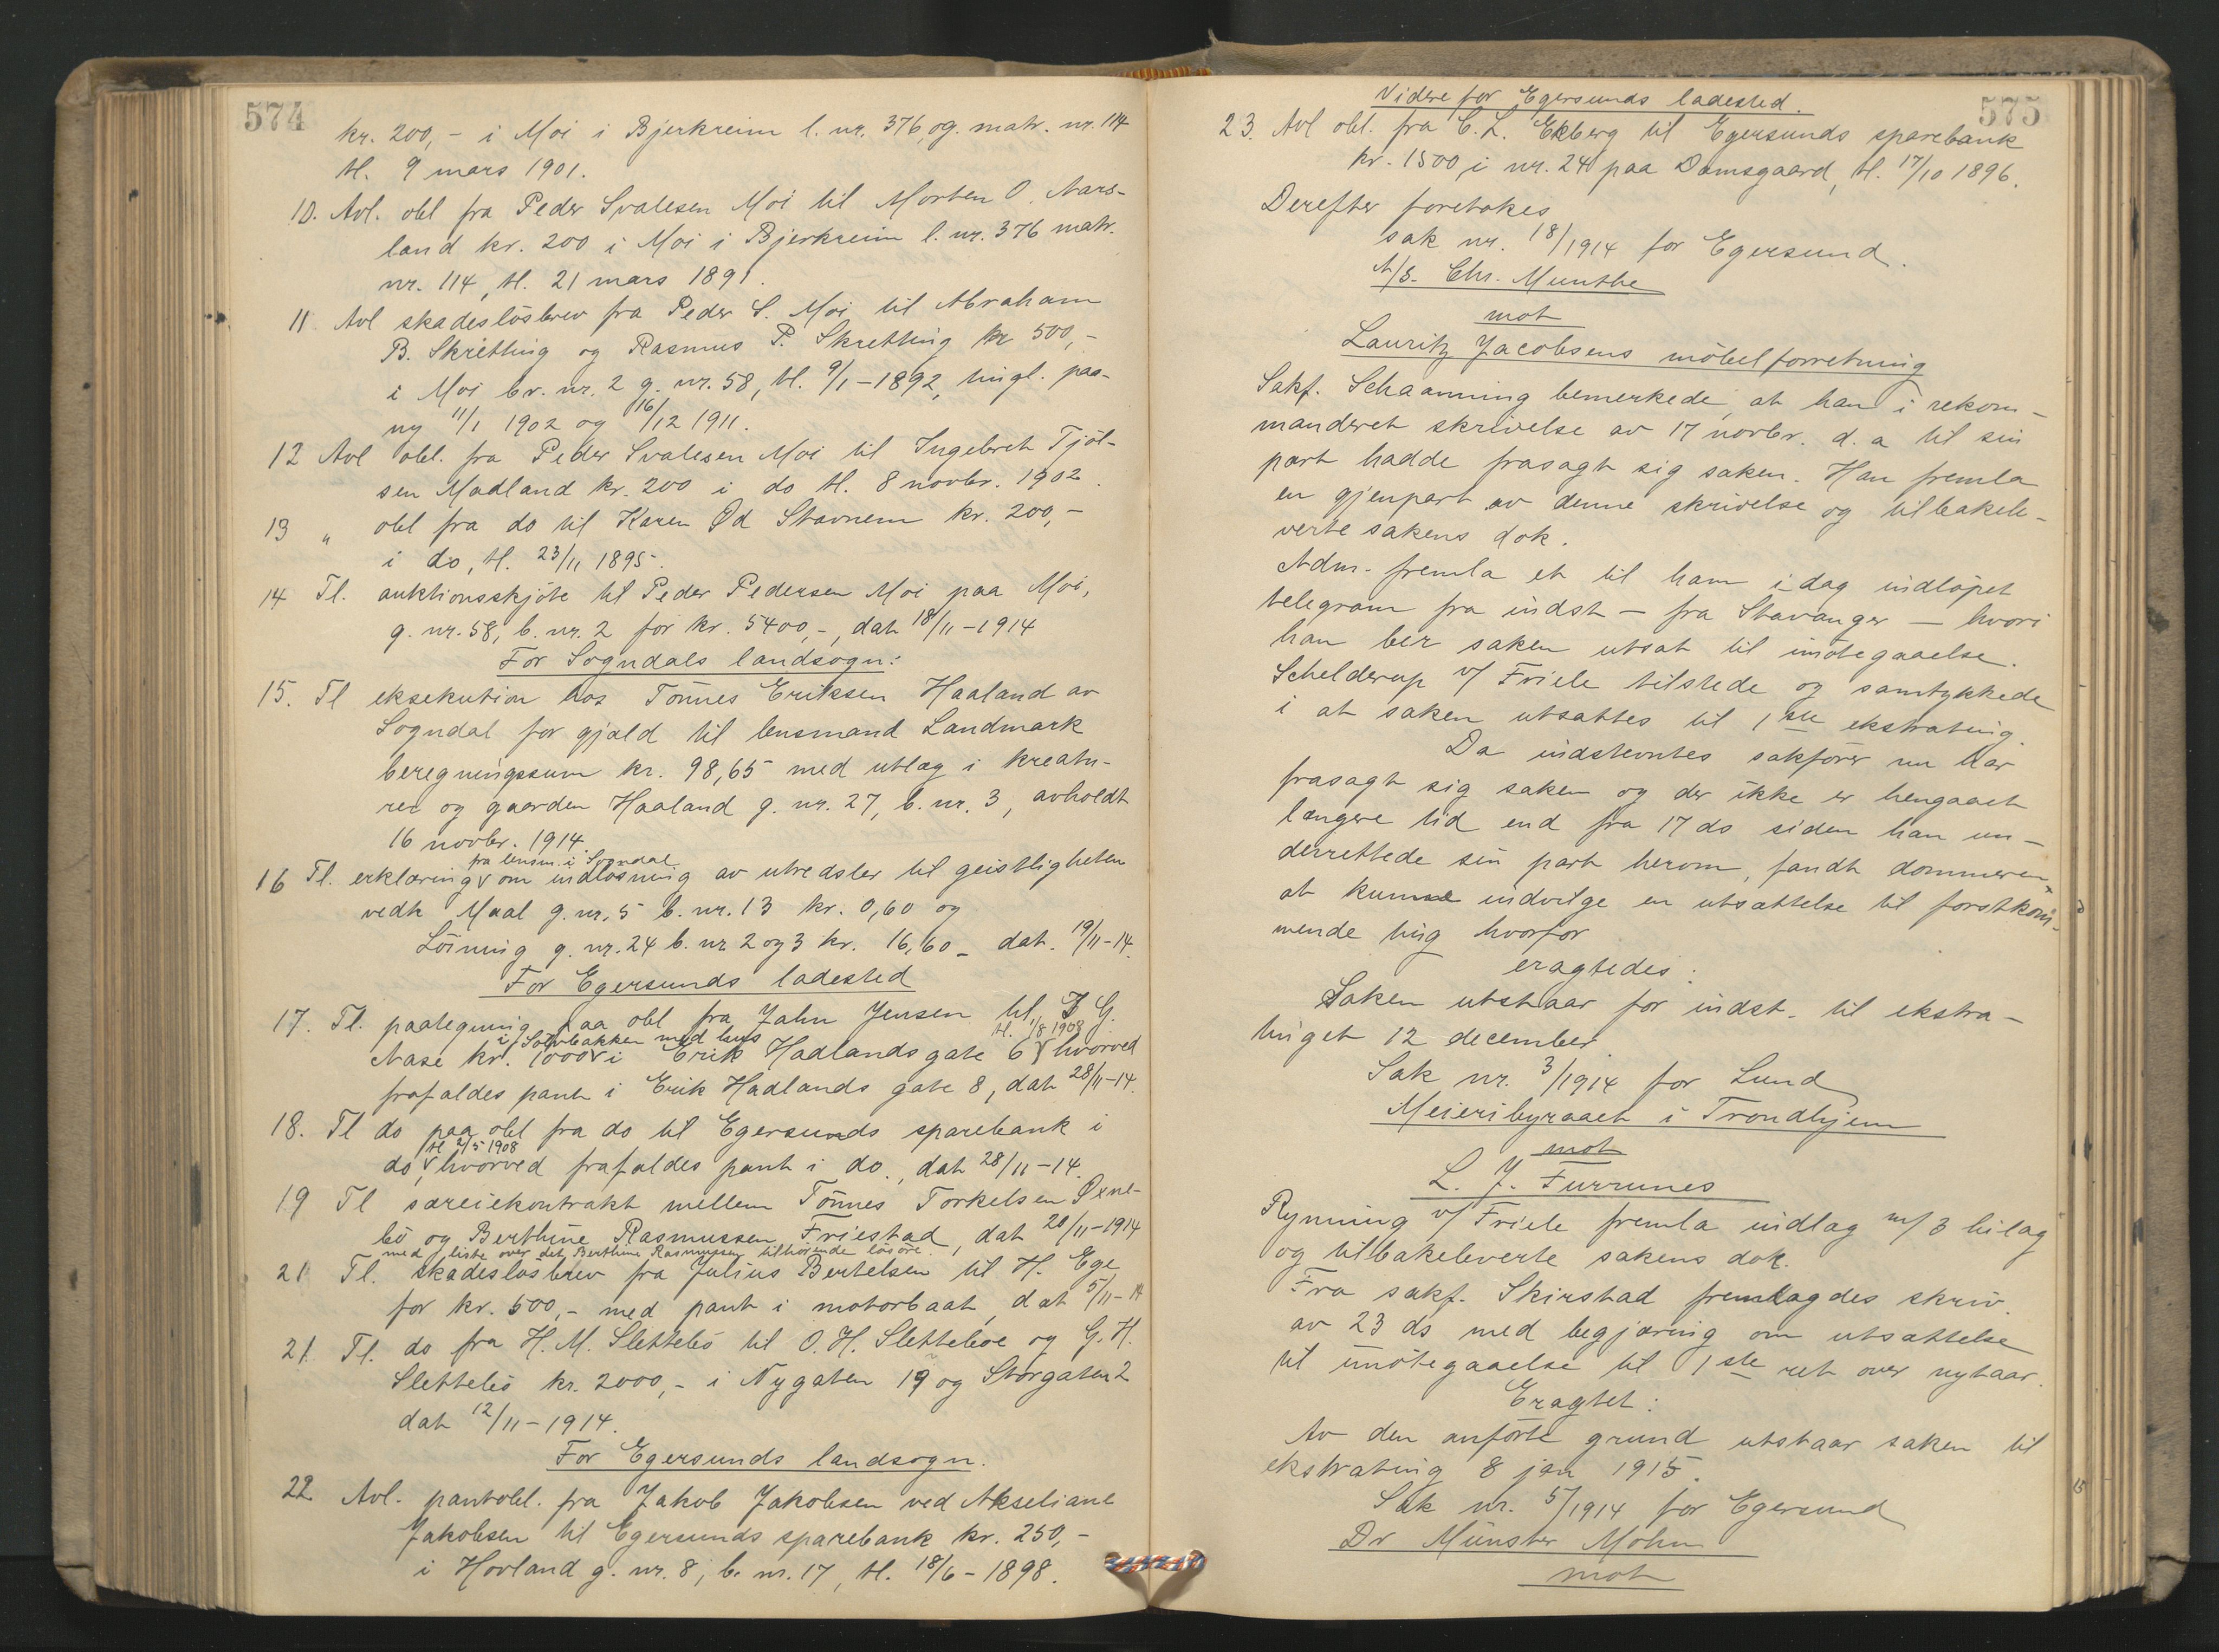 574
kr. 200,- i Moi i Bjerkreim l. nr. 376, og. matr. nr. 114
tl. 9 mars 1901.
10. Avl. obl fra Peder Svalesen Moi til Morten O. Aars-
land kr. 200 i Moi i Bjerkreim l. nr. 376 matr.
nr. 114, tl. 21 mars 1891.
11 Avl skadesløsbrev fra Peder S. Moi til Abraham
B. Skretting og Rasmus P. Skretting kr 500,-
i Moi br. nr. 2 g. nr. 58, tl. 9/1-1892, tingl. paa-
ny 11/1 1902 og 16/12 1911.
12 Avl obl. fra Peder Svalesen Moi til Ingebret Tjöl-
sen Madland kr. 200 i do tl. 8 novbr. 1902.
13 " obl fra do til Karen Od Stavnem kr. 200,-
i do, tl. 23/11 1895.
14 Tl. auktionsskjöte til Peder Pedersen Moi paa Moi,
g. nr. 58, b. nr. 2 for kr. 5400,-, dat 18/11-1914
For Sogndals landsogn:
15. Tl eksekution hos Tönnes Eriksen Haaland av
Sogndal for gjæld til lensmand Landmark
beregningssum kr. 98,65 med utlæg i kreatu-
rer og gaarden Haaland g. nr. 27, b. nr. 3, avholdt
16 novbr. 1914.
fra lensm. i Sogndal
16 Tl. erklæring v om indløsning av utredsler til geistligheten
vedk Maal g. nr. 5 b. nr. 13 kr. 0,60 og
Löining g. nr. 24 b. nr 2 og 3 kr. 16,60 - dat. 19/11-14.
For Egersunds ladested
17. Tl. paategning paa obl fra Jahn Jensen til G.
i Solbakken med hus tl. 1/8 1908
Aase kr. 1000 v i Erik Hadlandsgate 6 v hvorved
frafaldes pant i Erik Hadlands gate 8, dat 28/11-14.
18. Tl do paa obl fra do til Egersunds sparebank i
tl 2/5 1908
do, v hvorved frafaldes pant i do., dat 28/11-14.
19 Tl særeiekontrakt mellem Tönnes Torkelsen Øxne-
bö og Berthine Rasmussen Friestad, dat 20/11-1914
med liste over det Berthine Rasmussen tilhörende lösöre.
21 Tl. skadeslösbrev fra Julius Bertelsen til H. Ege
for kr. 500,- med pant i motorbaat, dat 5/11-14
21. Tl. do fra H. M. Slettebö til O. H. Sletteböe og G. H.
Slettebö kr. 2000,- i Nygaten 19 og Storgaten 2
dat 12/11-1914.
For Egersunds landsogn.
22 Avl. pantobl. fra Jakob Jakobsen ved Akseliane
Jakobsen til Egersunds sparebank kr. 250,-
i Hovland g. nr. 8, b. nr. 17, tl. 18/6-1898.
575
Videre for Egersunds ladested.
23. Avl obl. fra C. L. Ekberg til Egersunds sparebank
kr. 1500, i nr. 240 paa Damsgaard, tl. 17/10 1896.
Derefter foretokes
sak nr. 18/1914 for Egersund.
A/S. Chr. Munthe
mot
Lauritz Jacobsens möbelforretning
Sakf. Schaanning bemerkede, at han i rekom-
manderet skrivelse av 17 novbr. d. a til sin
part hadde frasagt sig saken. Han fremla
en gjenpart av denne skrivelse og tilbakele-
verte sakens dok.
Adm. fremla et til ham i dag indløpet
telegram fra indst - fra Stavanger - hvori
han ber saken utsat til imötegaaelse.
Schelderup v/ Friele tilstede og samtykkede
i at saken utsattes til 1ste ekstrating.
Da indstevntes sakförer nu har
frasagt sig saken og der ikke er hengaaet
længere tid end fra 17 ds siden han un-
derrettede sin part herom, fandt dommeren
at kunne indvilge en utsættelse til förstkom-
mende ting hvorfor
eragtedes:
Saken utstaar for indst. til ekstra-
tinget 12 december
Sak nr. 3/1914 for Lund
Meieribyraaet i Trondhjem
mot
L. J. Furrunes
Rynning v/ Friele fremla indlæg m/ 3 bilag
og tilbakeleverte sakens dok.
Fra sakf. Skirstad fremlagdes skriv.
av 23 ds med begjæring om utsættelse
til imötegaaelse til 1ste ret over nytaar.
Eragtet:
Av den anförte grund utstaar saken til
ekstrating 8 jan 1915.
Sak nr. 5/1914 for Egersund
Dr Münster Mohn
mot